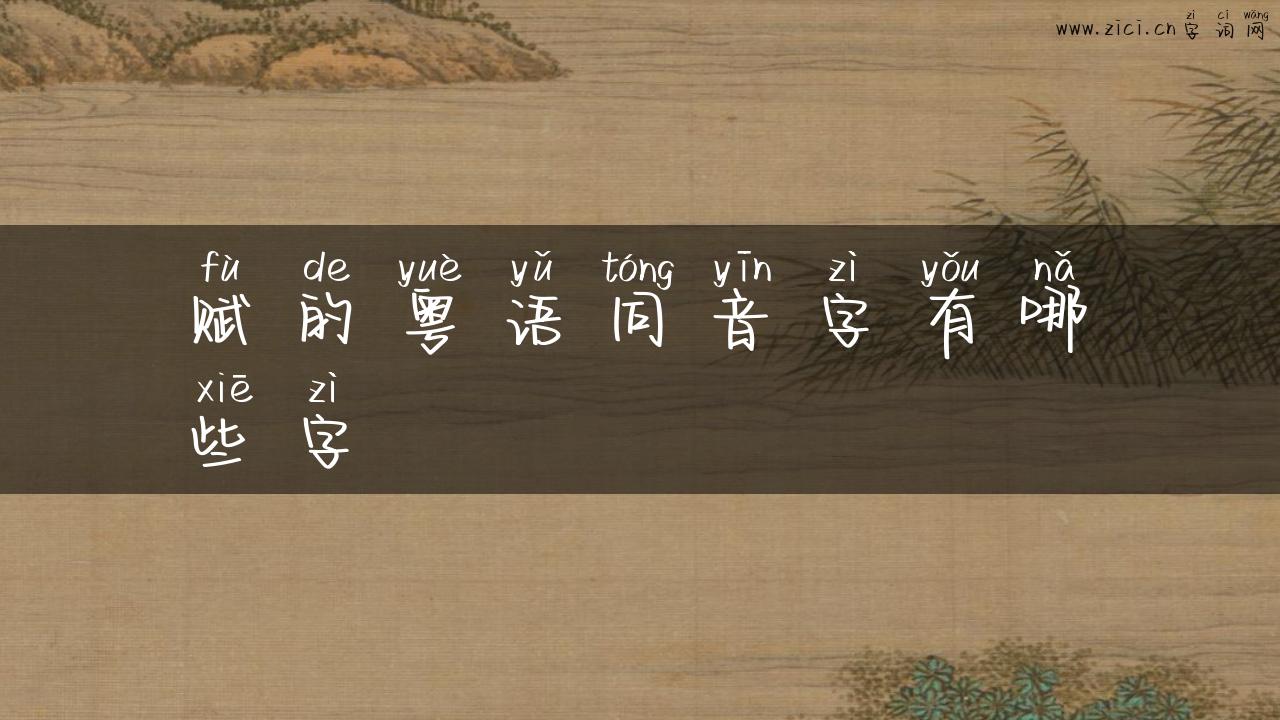 zì cí wǎng
www.zici.cn 字词网
fù de yuè yǔ tóng yīn zì yǒu nǎ
赋的粤语同音字有哪
xiē zì
些字